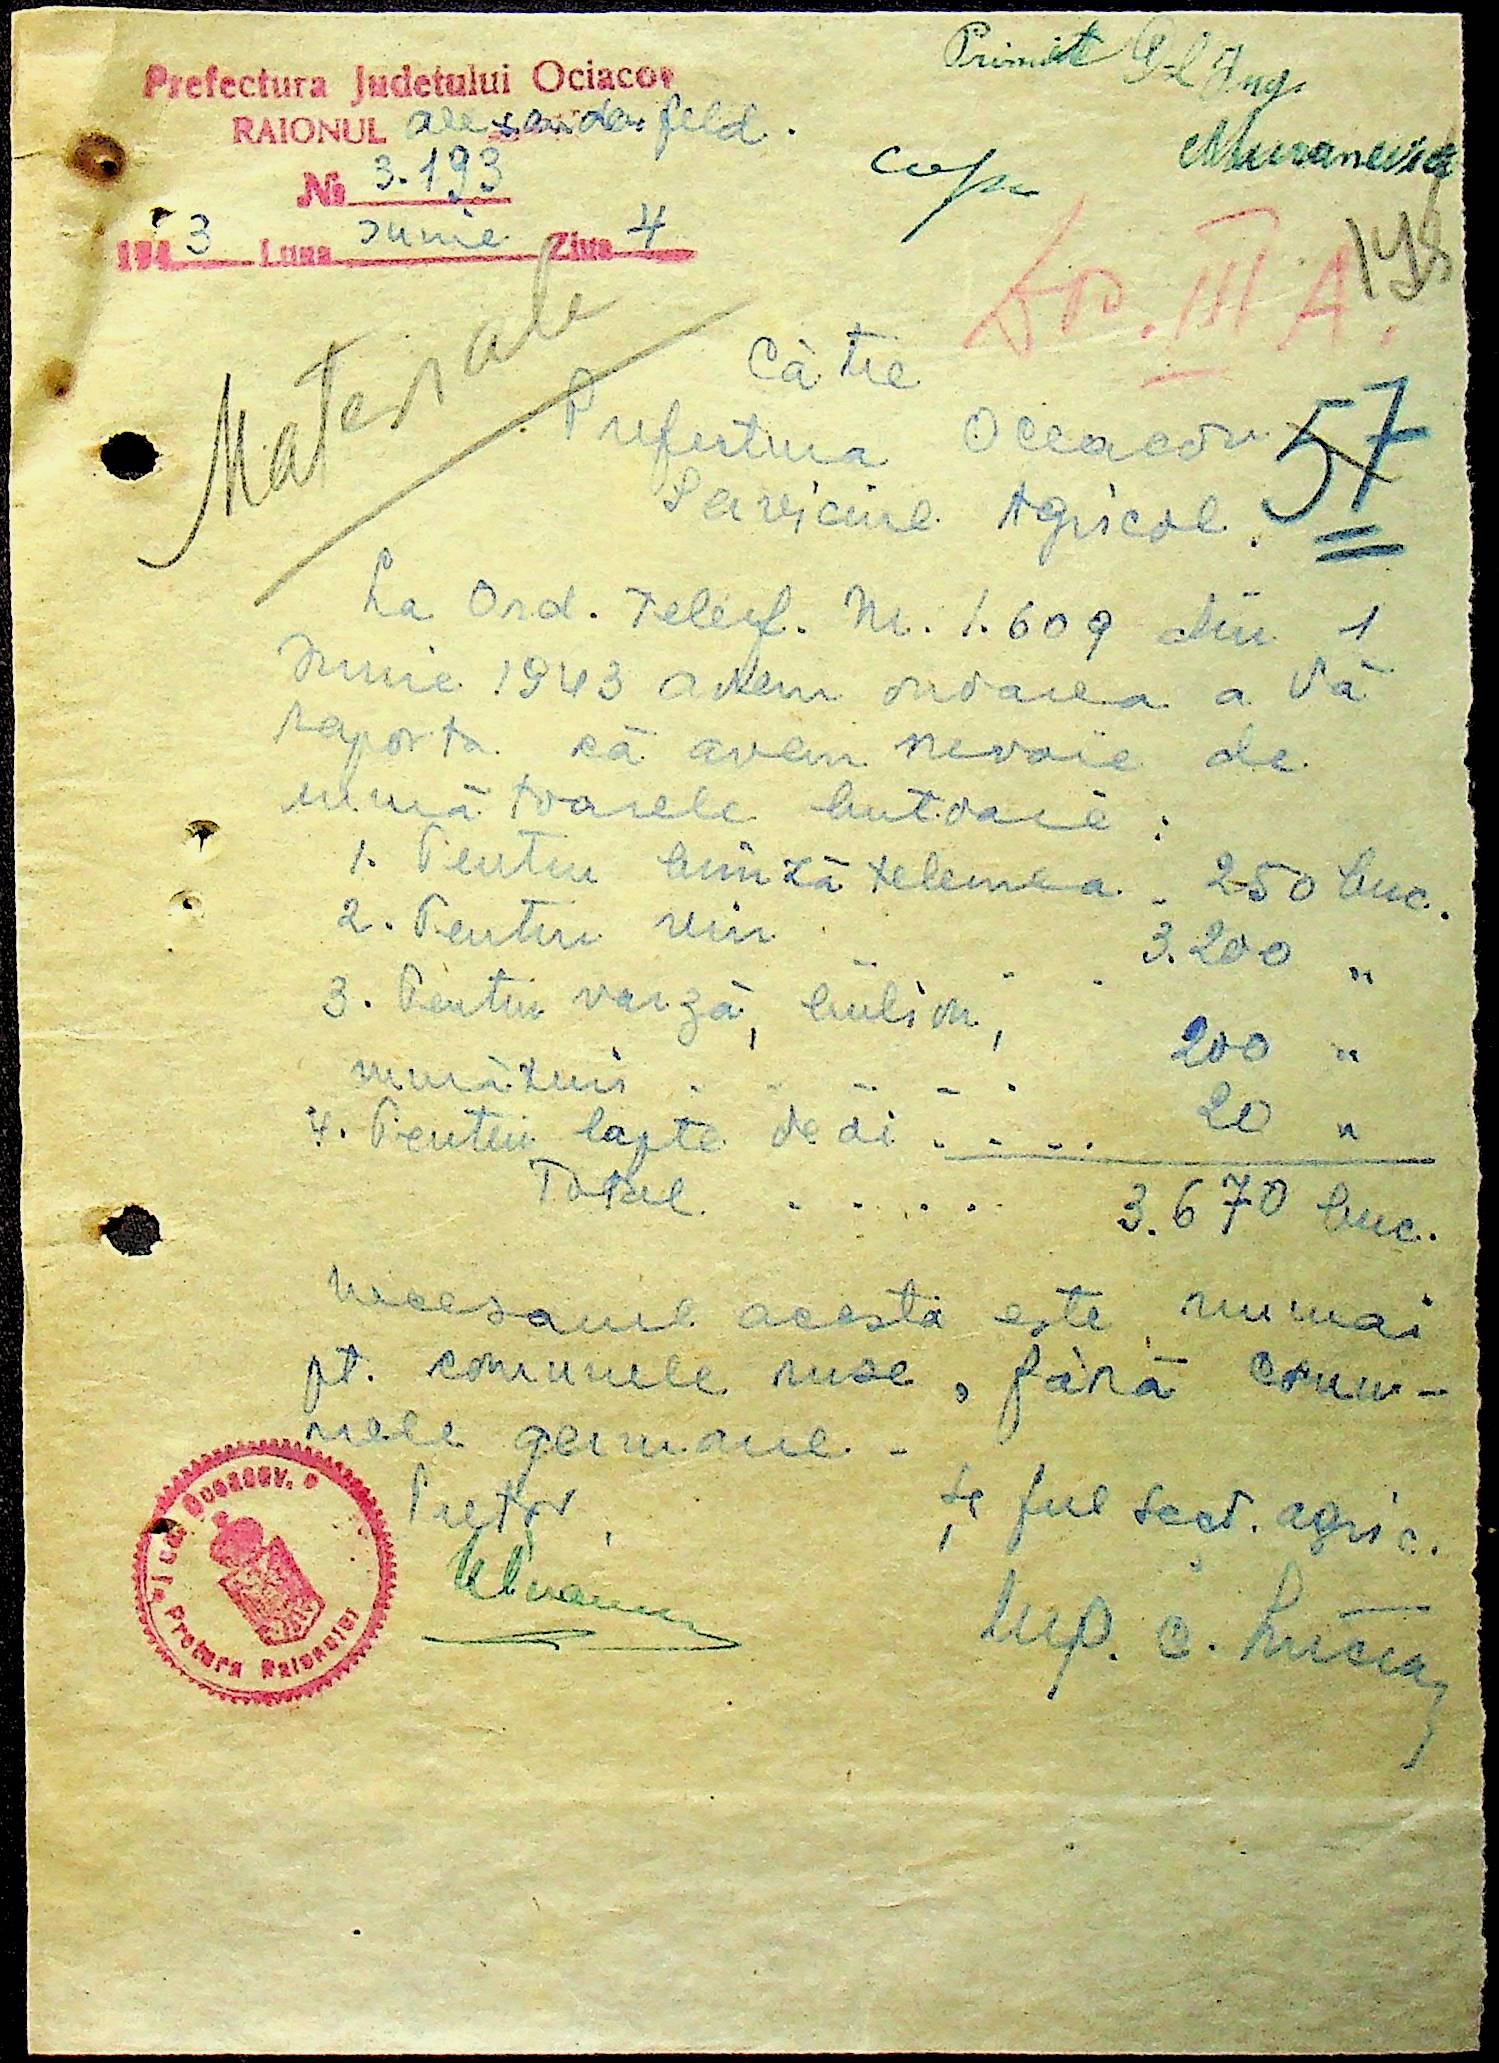 Prefectura Judetului Ociacov
RAIONUL Alexanderfeld.
№ 3.193
1943 Luna Iunie Ziua 4
Primit Dl Ing.
Dos. III A.
57
Materiale
Către
Prefectura Oceacov
Serviciul Agricol.
La Ord. Telef. Nr. 1.609 din 1
Iunie 1943 avem onoarea a Vă
raporta că avem nevoie de
următoarele butoaie:
1. Pentru brînză telemea . 250 buc.
2. Pentru vin . . . 3.200 "
3. Pentru varză, bulion,
murături . . . . . 200 "
4. Pentru lapte de oi . . . . 20 "
Total . . . . . 3.670 buc.
Necesarul acesta este numai
pt. comunele ruse, fără comu-
nele germane. -
Pretor,
Șeful Sect. agric.
Pretura Raionului